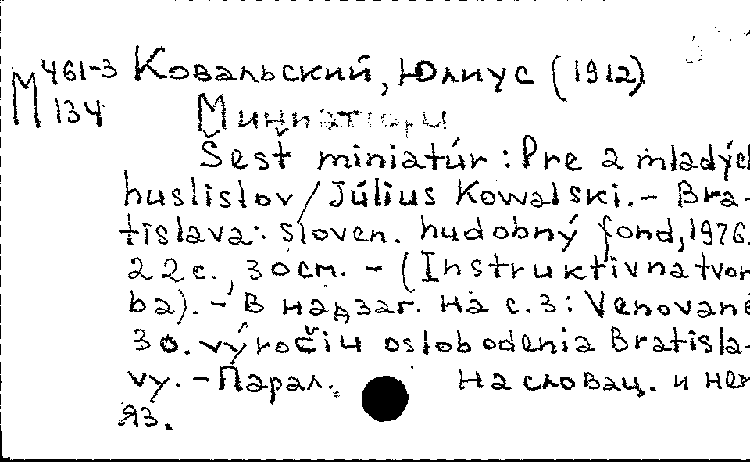 М 461-3 Ковальский, Юлиус (1912)
134 Миниатюры
Šest miniatúr : Pre 2 mladých
huslislov / Július Kowalski. – Bra-
tislava : Sloven. hudobný fond, 1976.
22 с., 30 см. – (Instruktívna tvor
ba). – В надзаг. на с. 3 : Venované
30. výročiu oslobodenia Bratisla-
vy. – Парал. на словац. и нем
яз.